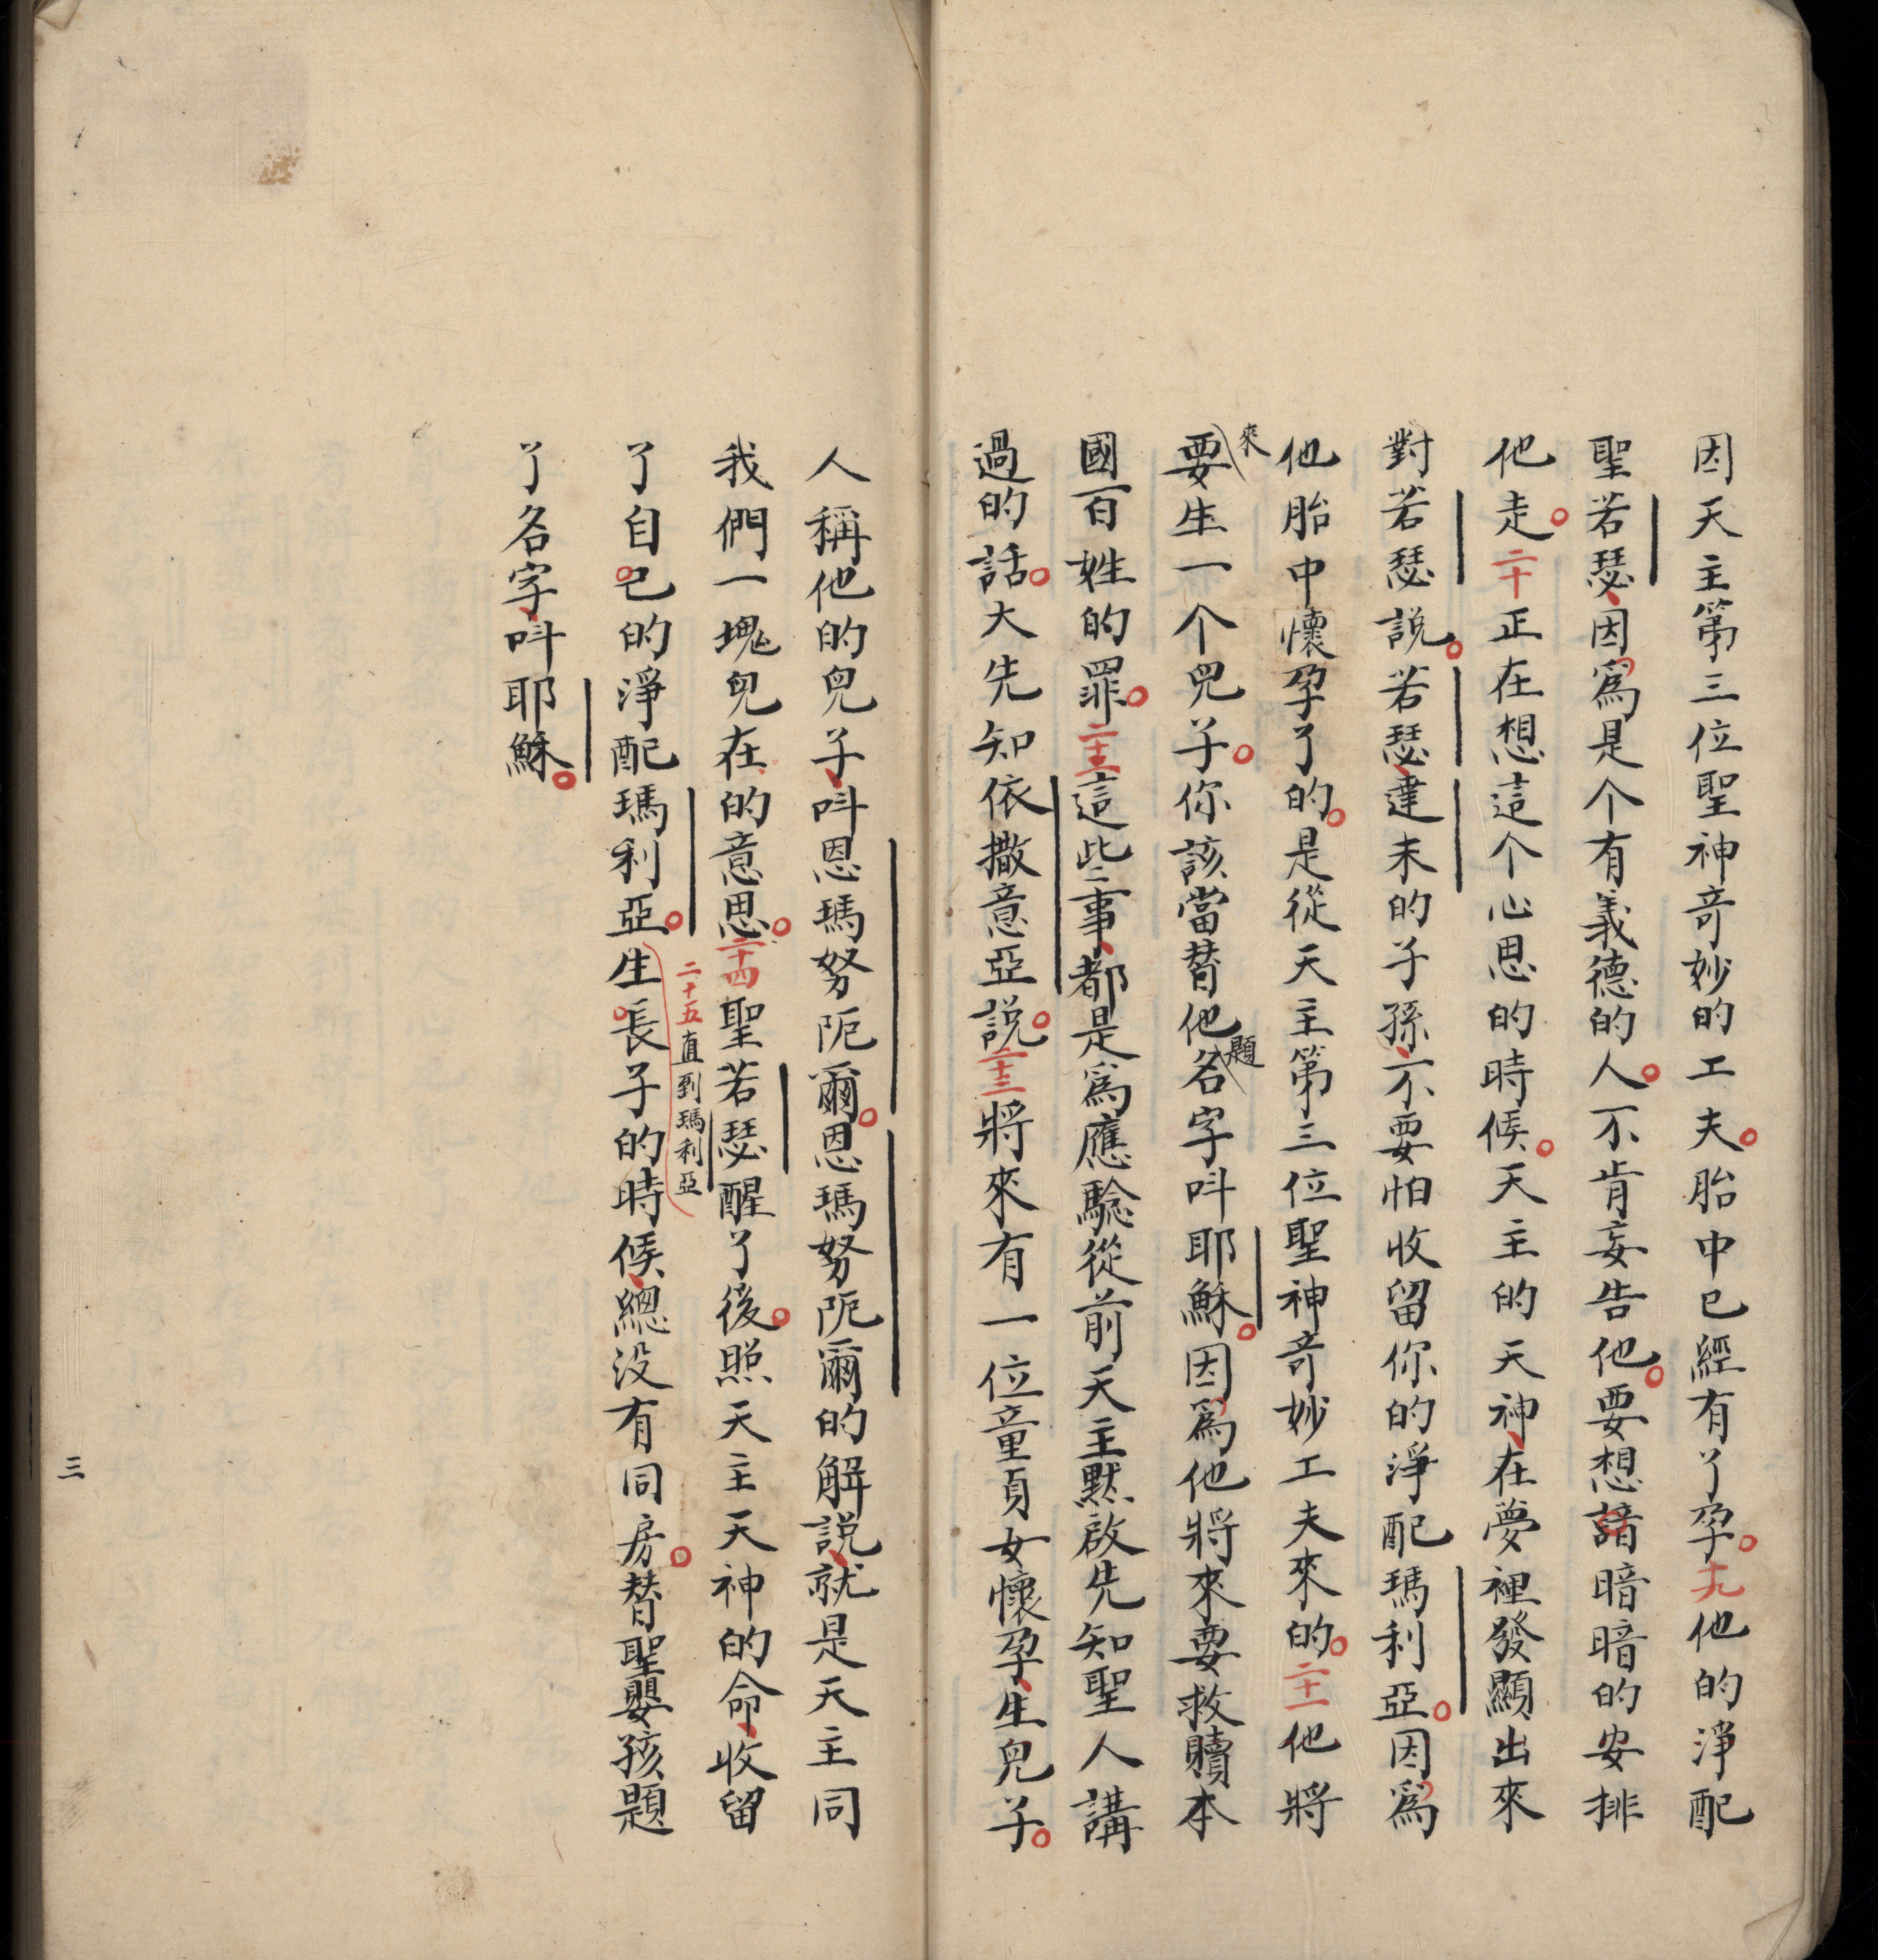 因天主第三位聖神竒妙的工夫。胎中已經有了孕。十九他的淨配
聖若瑟、因爲是个有義德的人。不肯妄告他。要想諳暗暗的安排
他走。二十正在想這个心思的時候。天主的天神、在夢裡發顯出來
對若瑟説。若瑟、達末的子孫、不要怕收留你的淨配瑪利亞。因爲
他胎中懷孕了的。是從天主第三位聖神竒妙工夫來的。二十一他將
來
要生一个兒子。你該當替他名字呌耶穌。因爲他將來要救贖本
題
國百姓的罪。二十二這些事、都是爲應騐從前天主默啟先知聖人講
過的話。大先知依撒意亞説。二十三將來有一位童貞女懷孕、生兒子。
人稱他的兒子、呌恩瑪努阨爾。恩瑪努阨爾的解説、就是天主同
我們一塊兒在的意思。二十四聖若瑟醒了後。照天主天神的命、收留
二十五直到瑪利亞
了自己的淨配瑪利亞。生長子的時候、總没有同房。替聖嬰孩題
了名字、呌耶穌。
三